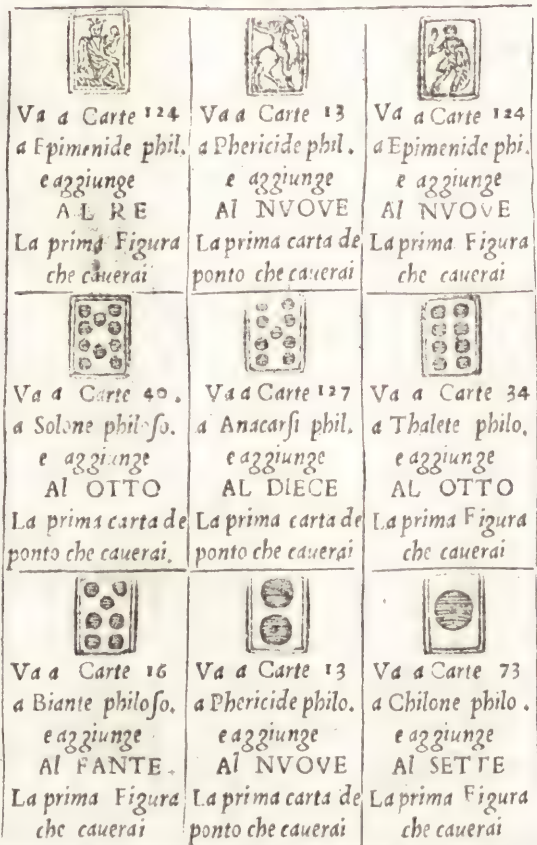 Va a Carte 124
a Epimenide phil.
e aggiunge
AL RE
La prima Figura
che cauerai
Va a Carte 13
a Phericide phil.
e aggiunge
Al NVOVE
La prima carta de
ponto che cauerai
Va a Carte 124
a Epimenide phi.
e aggiunge
Al NVOVE
La prima Figura
che cauerai
Va a Carte 40.
a Solone philoſo.
e aggiunge
Al OTTO
La prima carta de
ponto che cauerai.
Va a Carte 127
a Anacarſi phil.
e aggiunge
AL DIECE
La prima carta de
ponto che cauerai
Va a Carte 34
a Thalete philo.
e aggiunge
AL OTTO
La prima Figura
che cauerai
Va a Carte 16
a Biante philoſo.
e aggiunge
Al FANTE.
La prima Figura
che cauerai
Va a Carte 13
a Phericide philo.
e aggiunge
Al NVOVE
La prima carta de
ponto che cauerai
Va a Carte 73
a Chilone philo.
e aggiunge
Al SETTE
La prima Figura
che cauerai